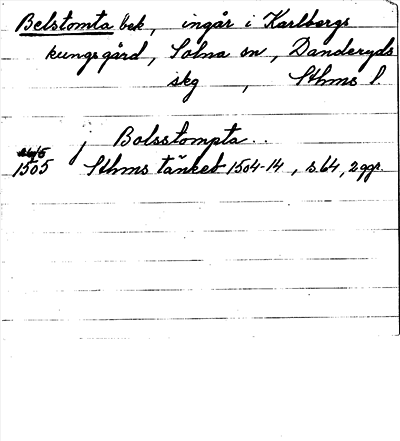 Belstomta bek, ingår i Karlbergs
kungsgård, Solna sn, Danderyds
skg, Sthms l.
i Bolsstompta..
1505 Sthms tänkeb 1504-14, s. 64, 2 ggr.